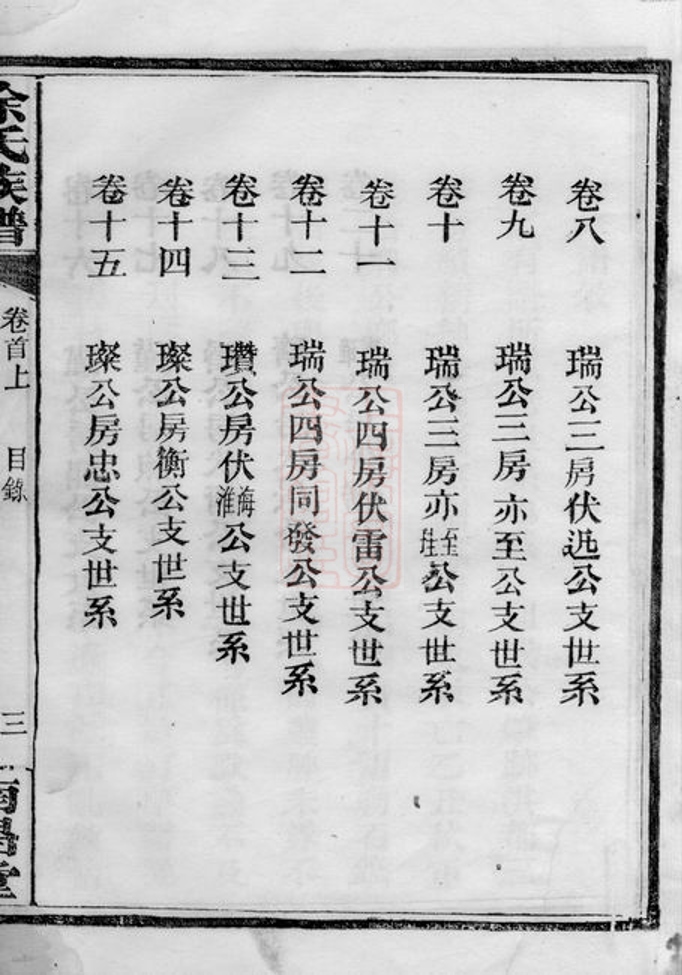 卷八 瑞公三房伏迯公支世系
卷九 瑞公三房亦至公支世系
卷十 瑞公三房亦至珄公支世系
卷十一 瑞公四房伏雷公支世系
卷十二 瑞公四房同發公支世系
卷十三 瓚公房伏海淮公支世系
卷十四 璨公房衡公支世系
卷十五 璨公房忠公支世系
氏族譜
卷首上 目錄
三